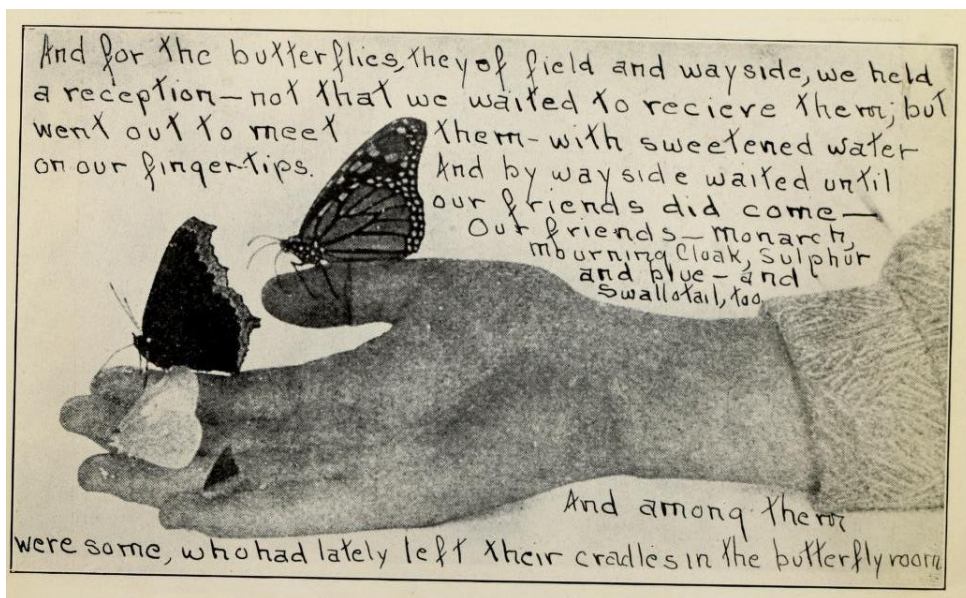 And for the butterflies, they of field and wayside, we held
a reception—not that we waited to recieve them; but
went out to meet them—with sweetened water
on our fingertips. And by wayside waited until
our friends did come—
Our friends—monarch,
mourning Cloak, Sulphur
and blue—and
Swallotail, too
And among them
were some, who had lately left their cradles in the butterfly room